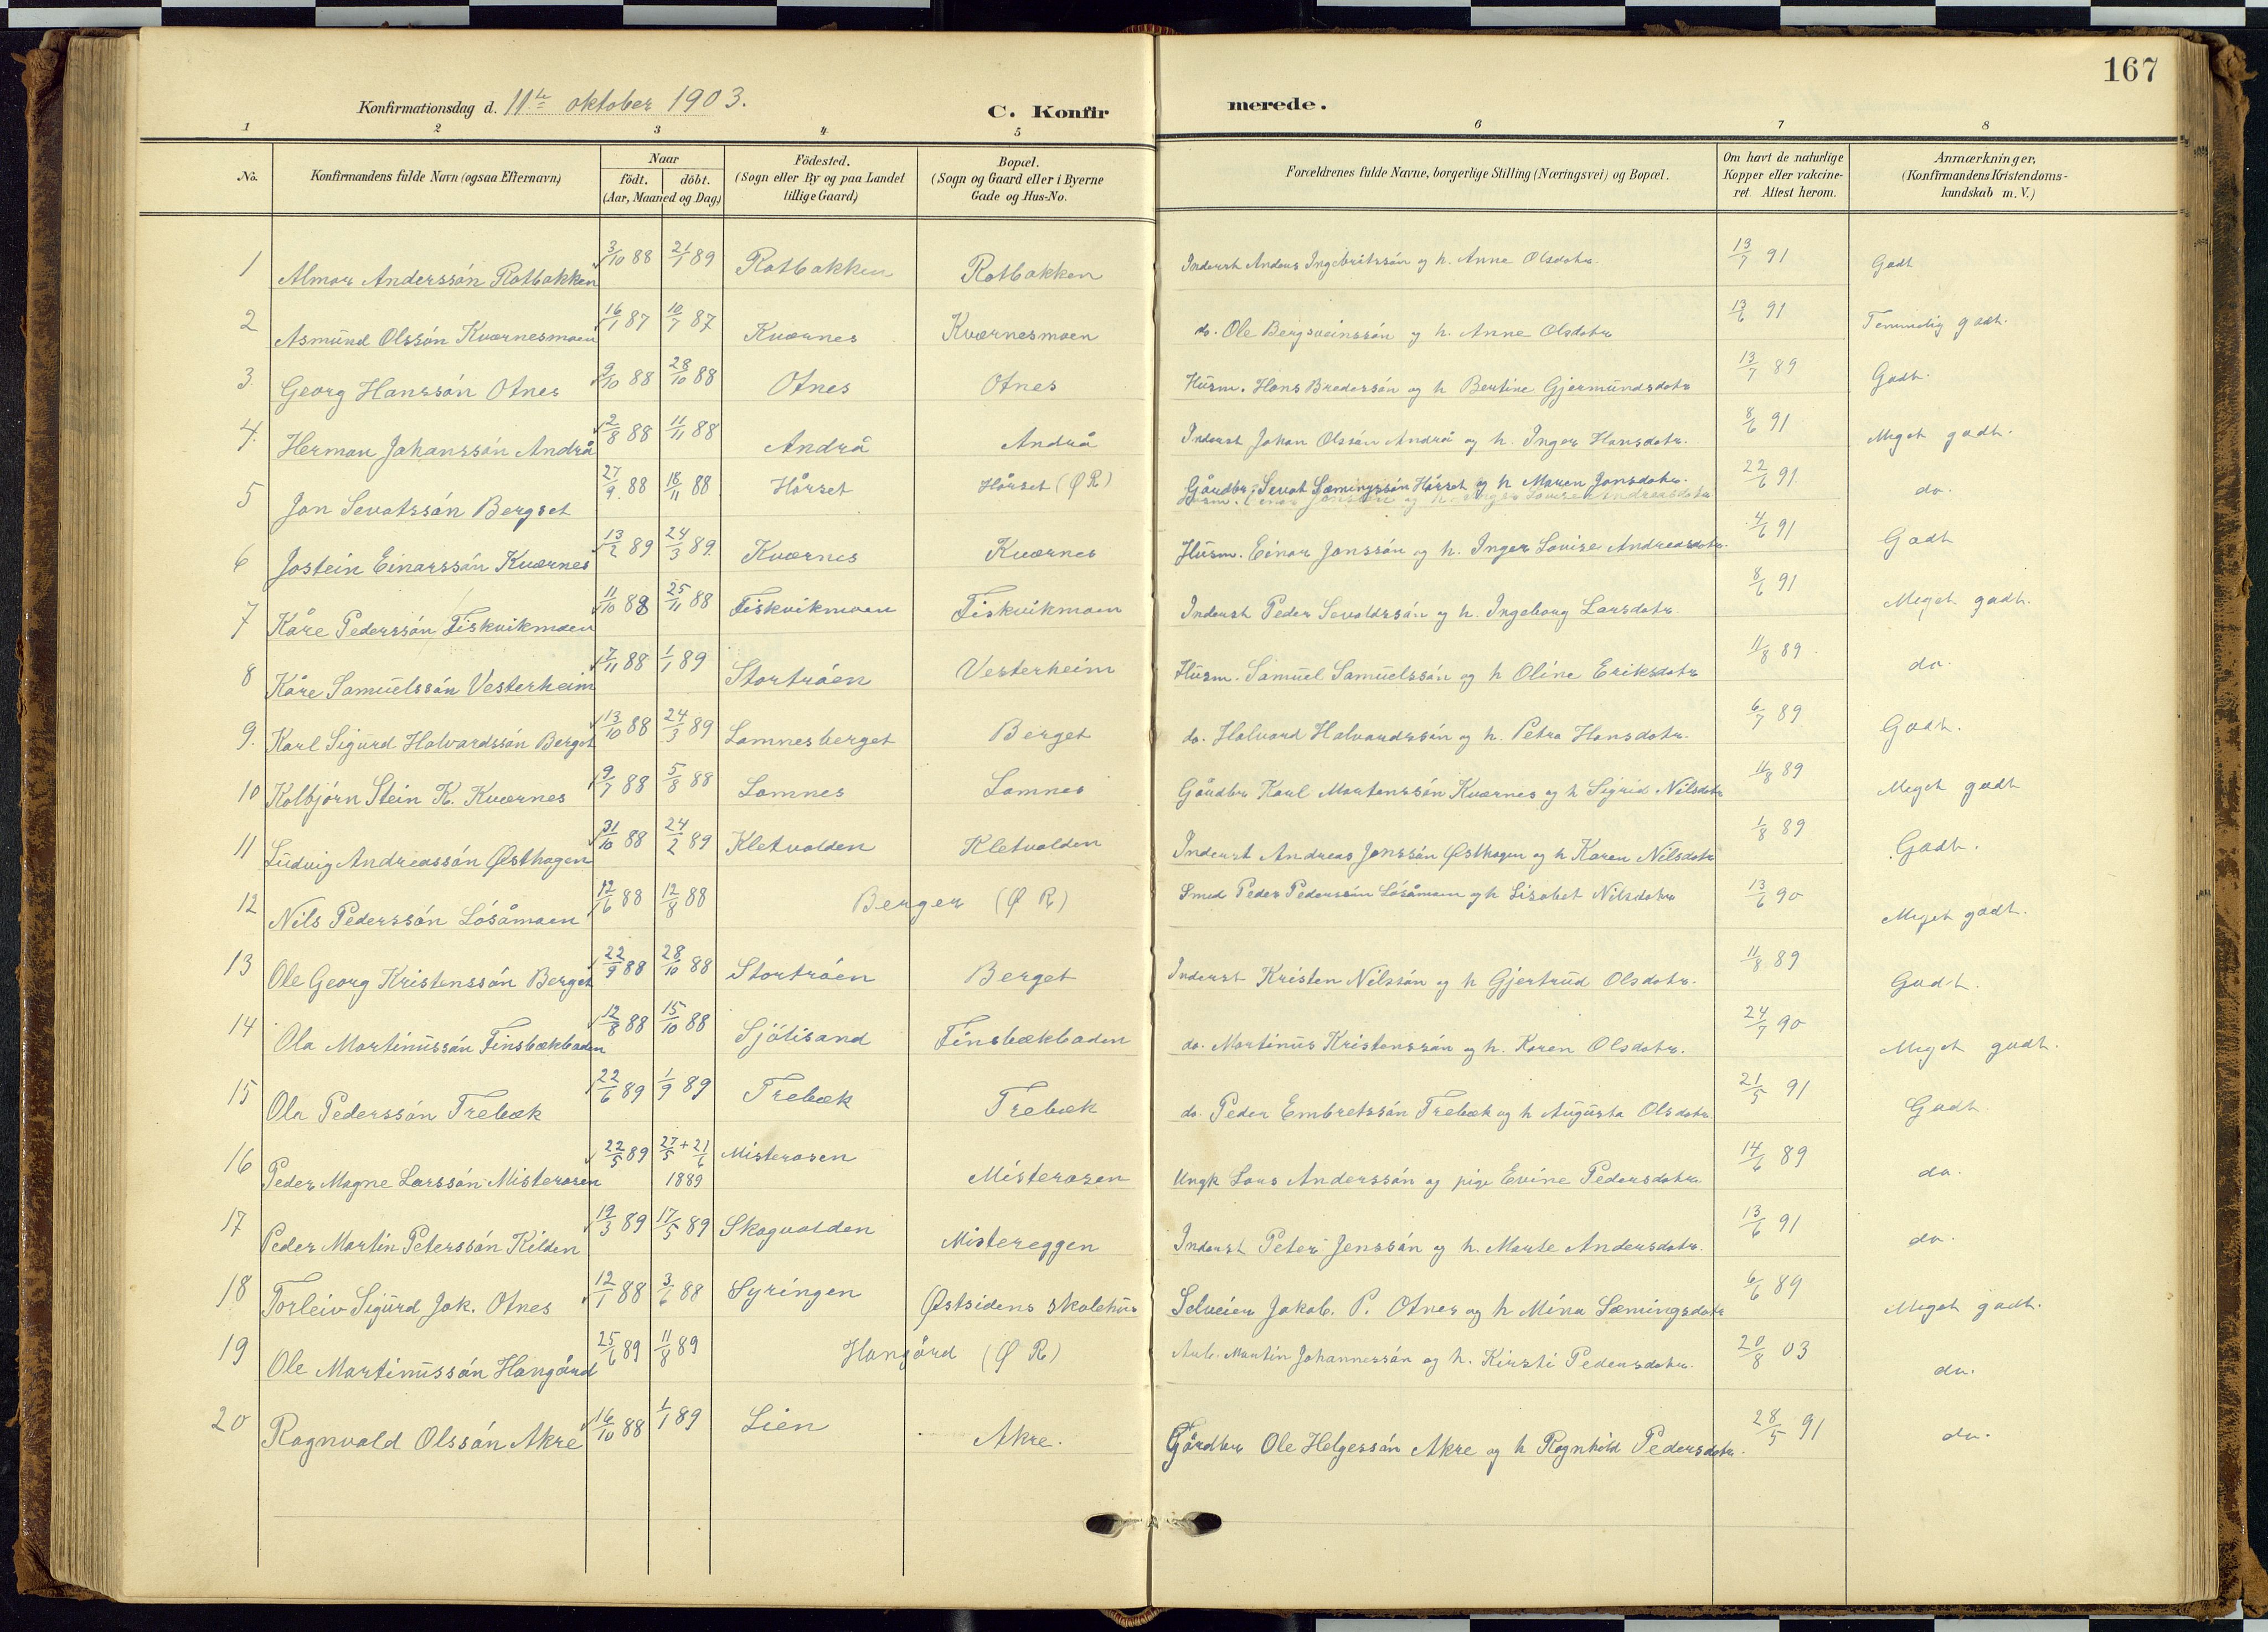 167
Konfirmationsdag d. 11te oktober 1903. C. Konfirmerede.
1 2 3 4 5 6 7 8
No. Konfirmandens fulde Navn (ogsaa Efternavn) Naar födt. döbt. (Aar, Maaned og Dag) Födested. (Sogn eller By og paa Landet tillige Gaard) Bopæl. (Sogn og Gaard eller i Byerne Gade og Hus-No. Forældrenes fulde Navne, borgerlige Stilling (Næringsvei) og Bopæl. Om havt de naturlige Kopper eller vakcineret Attest herom. Anmærkninger. (Konfirmandens Kristendomskundskab m. V.)
1 Almar Anderssón Rotbakken 3/10 88 21/1 89 Rotbakken Rotbakken Inderst Anders Ingebritssón og h. Anne Olsdotr. 13/7 91 Godt
2 Asmund Olssón Kværnesmoen 16/1 87 10/7 87 Kværnes Kværnesmoen do. Ole Bergsveinssón og h. Anne Olsdotr 13/6 91 Temmelig godt.
3. Georg Hanssón Otnes 9/10 88 28/10 88 Otnes Otnes Husm. Hans Bredessón og h Bertine Gjermundsdotr 13/7 89 Godt.
4. Herman Johanssón Andrå 12/8 88 11/11 88 Andrå Andrå Inderst Johan Olssón Andrå og h. Inger Hansdotr. 8/6 91 Meget godt.
5 Jon Sevatssón Bergset 27/9 88 18/11 88 Hårset Hårset (Ø R) Gårdbr. Sevat Sæmingssón Hårset og h Maren Jonsdotr. 22/6 91 do.
6 Jostein Einarssón Kværnes 13/2 89 24/3 89. Kværnes Kværnes Husm. Einar Jonssón og h. Inger Lovise Andreasdotr. 4/6 91 Godt
7 Kåre Pederssón Fiskvikmoen 11/10 88 25/11 88 Fiskvikmoen Fiskvikmoen Inderst Peder Sevaldssón og h. Ingeborg Larsdotr. 8/6 91 Meget godt.
8 Kåre Samuelssón Vesterheim 7/11 88 1/1 89 Stortróen Vesterheim Husm. Samuel Samuelssón og h Oline Eriksdotr 11/8 89 do.
9. Karl Sigurd Halvardssón Berget 13/10 88 24/3 89 Lomnesberget Berget do. Halvard Halvardssón og h. Petra Hansdotr. 6/7 89 Godt.
10 Kolbjórn Stein K. Kværnes 9/7 88 5/8 88 Lomnes Lomnes Gårdbr Karl Martenssón Kværnes og h Sigrid Nilsdotr 11/8 89 Meget godt
11 Ludvig Andreassón Østhagen 31/10 88 24/2 89 Kletvolden Kletvolden Inderst Andreas Jonssón Østhagen og h Karen Nilsdotr 1/8 89 Godt.
12 Nils Pederssón Lósåmoen 12/6 88 12/8 88 Berger (Ø R) Smed Peder Pederssón Lósåmoen og h Lisabet Nilsdotr 13/6 90 Meget godt.
13 Ole Georg Kristenssón Berget 22/9 88 28/10 88 Stortróen Berget Inderst Kristen Nilssón og h Gjertrud Olsdotr. 11/8 89 Godt.
14 Ola Martinussón Finsbækbaden 12/8 88 15/10 88 Sjölisand Finsbækbaden do. Martinus Kristenssón og h. Karen Olsdotr. 24/7 90 Meget godt.
15 Ola Pederssón Trebæk 22/6 89 1/9 89 Trebæk Trebæk do. Peder Embretssón Trebæk og h Augusta Olsdotr. 21/5 91 Godt
16 Peder Magne Larssón Misterosen 22/5 89 27/5 + 21/6 1889 Misterosen Misterosen Ungk Lars Anderssón og pige Evine Pedersdotr. 14/6 89 do.
17 Peder Martin Peterssón Kilden 19/3 89 17/5 89 Skogvolden Mistereggen Inderst Peter Jenssón og h. Marte Andersdotr. 13/6 91 do.
18 Torleiv Sigurd Jak. Otnes 12/1 88 3/6 88 Syringen Østsidens skolehus Selveier Jakob. P. Otnes og h Mina Sæmingsdotr 6/6 89 Meget godt.
19 Ole Martinussón Hangård 25/6 89 11/8 89 Hangård (Ø R) Arb. Martin Johannessón og h. Kirsti Pedersdotr. 20/8 03 do.
20 Ragnvald Olssón Akre 16/10 88 1/1 89 Lien Akre. Gårdbr Ole Helgessón Akre og h Ragnhild Pedersdotr. 28/5 91 do.